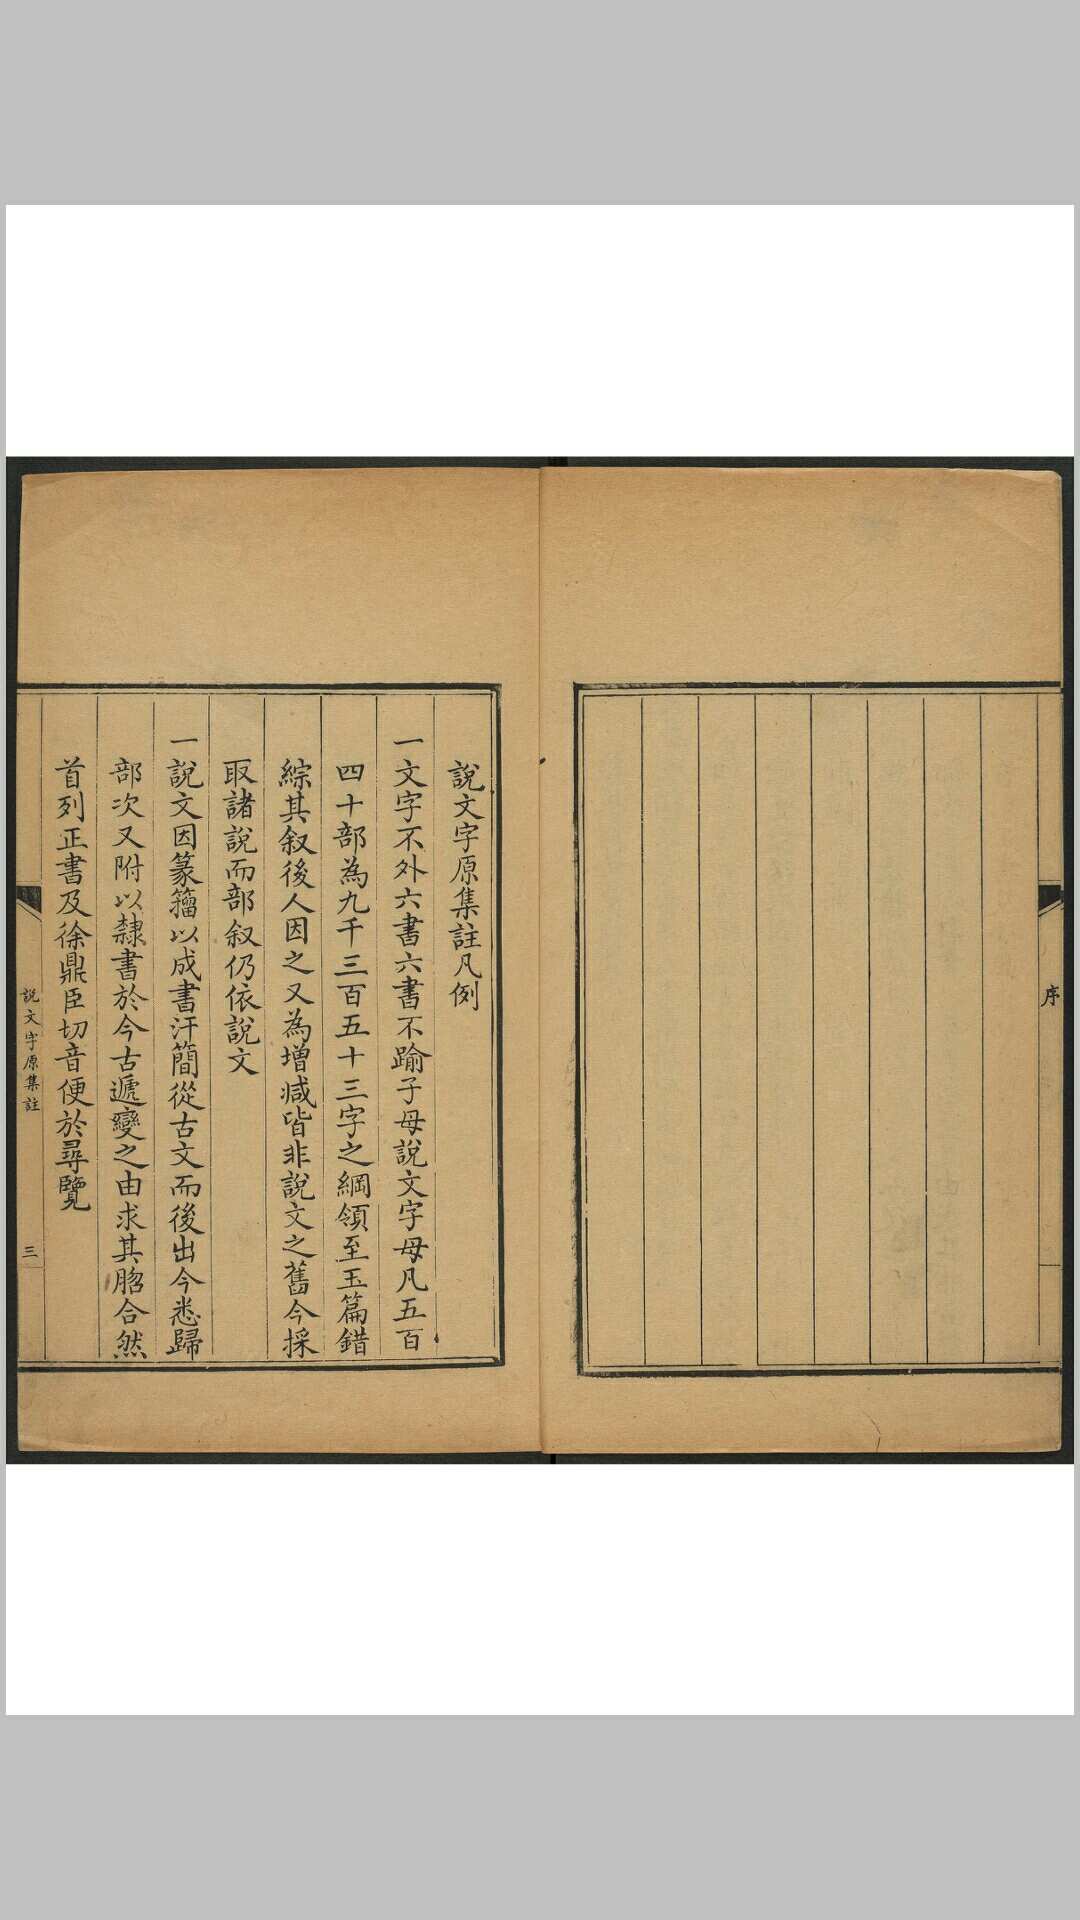 序
說文字原集註凡例
一文字不外六書六書不踰子母說文字母凡五百
四十部為九千三百五十三字之綱領至玉篇錯
綜其叙後人因之又為增减皆非說文之舊今採
取諸說而部叙仍依說文
一說文因篆籀以成書汗簡從古文而後出今悉歸
部次又附以隸書於今古遞變之由求其脗合然
首列正書及徐鼎臣切音便於尋覽
說文字原集註
三